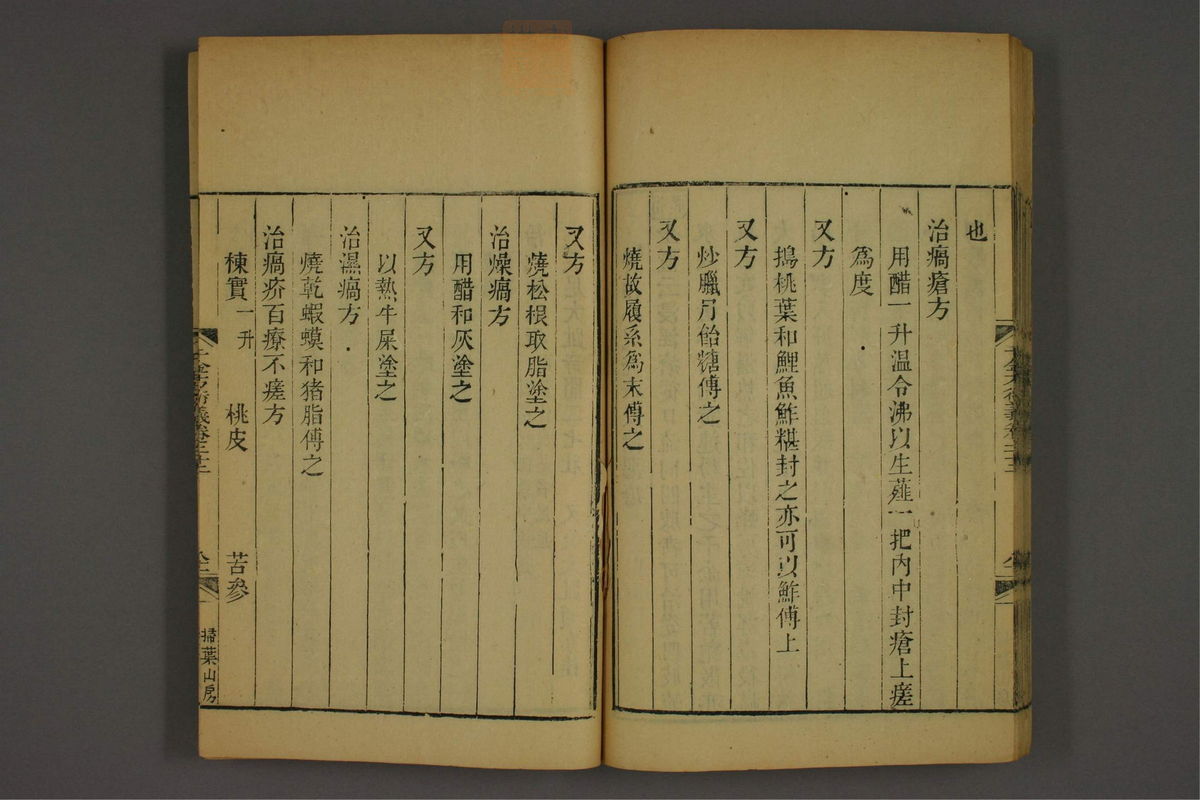 也
治瘑瘡方
用醋一升温令沸以生薤一把内中封瘡上瘥
爲度
又方
搗桃葉和鯉魚鮓糂封之亦可以鮓傅上
又方
炒臘月飴糖傅之
又方
燒故履系爲末傅之
又方
燒松根取脂塗之
治燥瘑方
用醋和灰塗之
又方
以熱牛屎塗之
治濕瘑方
燒乾蝦蟆和猪脂傅之
治瘑疥百療不瘥方
棟實一升 桃皮 苦參
千金方衍義卷二十二
掃葉山房